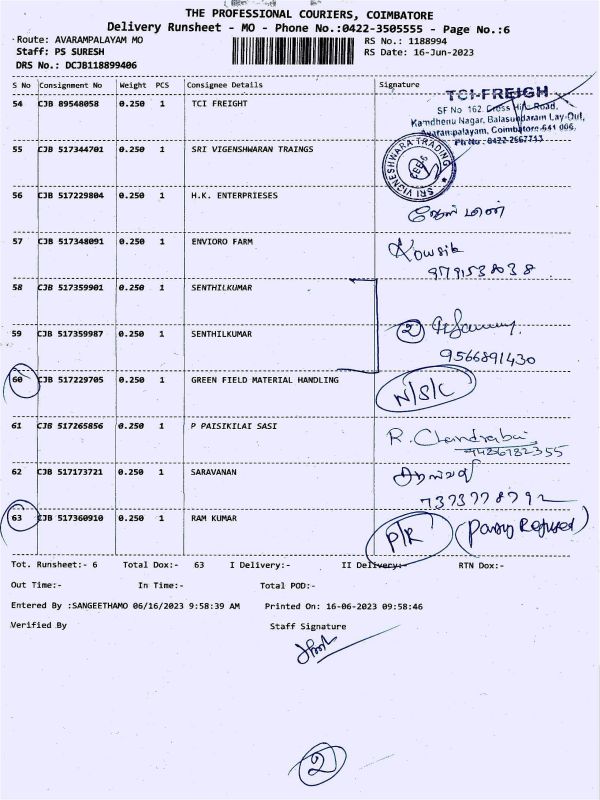 THE PROFESSIONAL COURIERS, COIMBATORE
Delivery Runsheet - MO - Phone No.:0422-3505555 - Page No.:6
Route: AVARAMPALAYAM MO
RS No.: 1188994
Staff: PS SURESH
RS Date: 16-Jun-2023
DRS No.: DCJB118899406
S No Consignment No Weight PCS Consignee Details Signature
54 CJB 89548058 0.250 1 TCI FREIGHT
TCI-FREIGH
SF No 162 Cross Hill Road,
Kamdhenu Nagar, Balasundaram Lay-Out,
Avarampalayam, Coimbatore-641 006.
Ph No : 0422-2667713
55 CJB 517344701 0.250 1 SRI VIGENSHWARAN TRAINGS
SRI VIGNESHWARA TRADING
56 CJB 517229804 0.250 1 H.K. ENTERPRIESES
57 CJB 517348091 0.250 1 ENVIORO FARM
Kowsik
9791538038
58 CJB 517359901 0.250 1 SENTHILKUMAR
59 CJB 517359987 0.250 1 SENTHILKUMAR
2
9566891430
60 CJB 517229705 0.250 1 GREEN FIELD MATERIAL HANDLING
N/S/C
61 CJB 517265856 0.250 1 P PAISIKILAI SASI
R. Chandrabai
9486782355
62 CJB 517173721 0.250 1 SARAVANAN
7373778792
63 CJB 517360910 0.250 1 RAM KUMAR
P/R (Party Refused)
Tot. Runsheet:- 6 Total Dox:- 63 I Delivery:- II Delivery:- RTN Dox:-
Out Time:- In Time:- Total POD:-
Entered By :SANGEETHAMO 06/16/2023 9:58:39 AM Printed On: 16-06-2023 09:58:46
Verified By Staff Signature
2